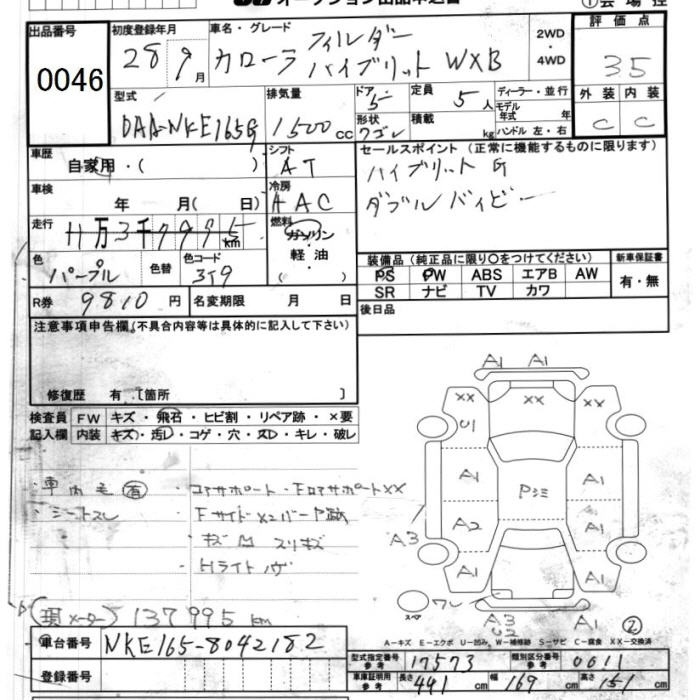 オークション出品申込書
出品番号 0046
初度登録年月 28 9月
車名・グレード カローラ フィルダー ハイブリット WXB
2WD・4WD
評価点 35
外装 C 内装 C
型式 DAA-NKE165G
排気量 1500cc
ドア 5 形状 ワゴン
定員 5人 積載 kg
ディーラー・並行
モデル年式 年
ハンドル 左・右
車歴 自家用・( )
シフト AT
セールスポイント (正常に機能するものに限ります)
ハイブリット G
ダブルバイビー
車検 年 月( 日)
冷房 AAC
走行 11万3千7995km
燃料 ガソリン・軽油 ( )
色 パープル 色替 色コード 3J9
装備品 (純正品に限り○をつけてください)
PS PW ABS エアB AW
SR ナビ TV カワ
新車保証書 有・無
R券 9810円 名変期限 月 日
後日品
注意事項申告欄(不具合内容等は具体的に記入して下さい)
修復歴 有[箇所 ]
検査員記入欄 FW キズ・飛石・ヒビ割・リペア跡・×要
内装 キズ・汚レ・コゲ・穴・スレ・キレ・破レ
・車内毛有
・シートスレ
コアサポート・FロアサポートXX
Hライト
A1 A1
XX XX XX
U1
A1 Pシミ A1
A2 A1
A3
A1 A1
スペア
A3 U2 A1 ②
(現メーター) 137995km
A-キズ E-エクボ U-凹み W-補修跡 S-サビ C-腐食 XX-交換済
車台番号 NKE165-8042182
登録番号
型式指定番号 参考 17573 類別区分番号 参考 0011
車庫証明用 参考 長さ 441cm 幅 169cm 高さ 151cm